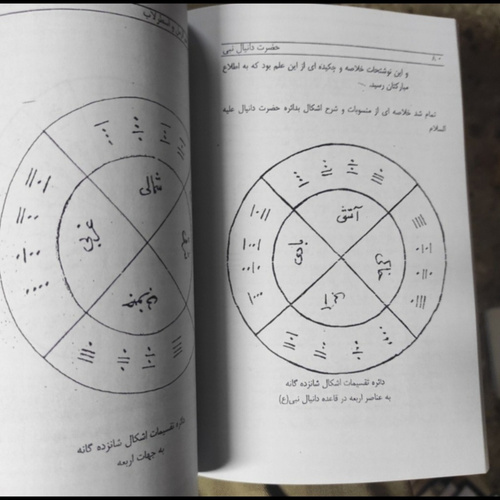 حضرت دانیال نبی
۸۰
و این نوشتجات خلاصه و چکیده ای از این علم بود که به اطلاع
مبارکتان رسید.
تمام شد خلاصه ای از منسوبات و شرح اشکال بدائره حضرت دانیال علیه
السلام
آتش
بادی
خاکی
آبی
دائره تقسیمات اشکال شانزده گانه
به عناصر اربعه در قاعده دانیال نبی(ع)
رمل و اسطرلاب
شمالی
غربی
جنوبی
دائره تقسیمات اشکال شانزده گانه
به جهات اربعه